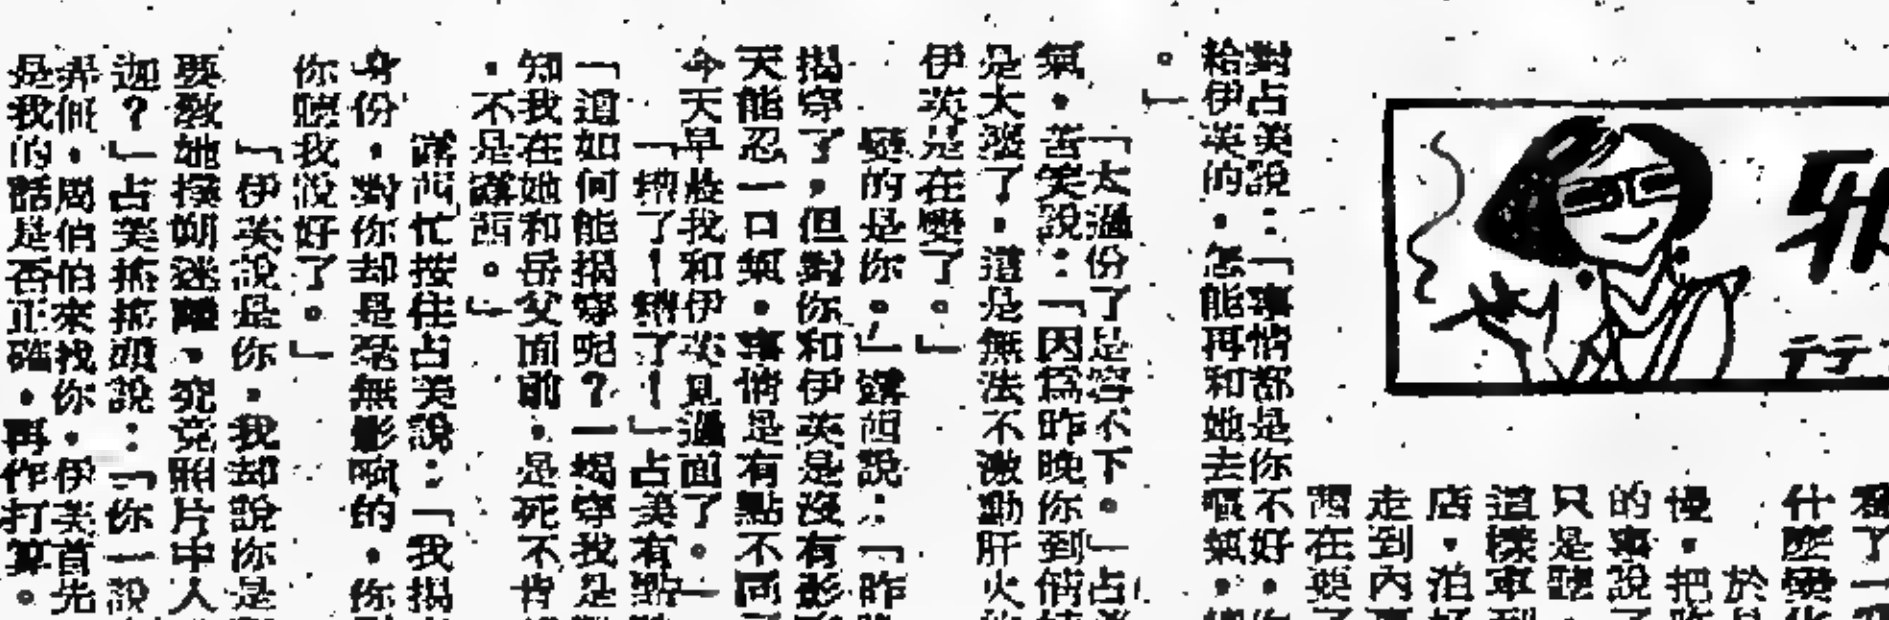 什麼變化
於是
慢，把昨
的事說了
只是聽，
這樣車到
店，泊好
走到內
西在要了
對占美說：「事情都是你不好，你
給伊英的，怎能再和她去嘔氣，
。」
「太過份了是容不下。」占美
氣，苦笑說：「因為昨晚你到倩
是大變了，這是無法不激動肝火的
伊英是在變了。」
變的是你。」露西說：「昨晚
揭穿了，但對你和伊英是沒有影
天能忍一口氣，事情是有點不同
今天早晨我和伊英見過面了。」
「糟了！糟了！」占美有點
「這如何能揭穿呢？一揭穿我是
知我在她和岳父面前，是死不肯
，不是露西。」
露西忙按住占美說：「我揭
身份，對你却是毫無影响的，你
你聽我說好了。」
「伊英說是你，我却說你是
要教她撲朔迷離，究竟照片中人
迦？」占美搖搖頭說：「你一說
弄僵，周伯伯來找你，伊英首先
是我的話是否正確，再作打算。